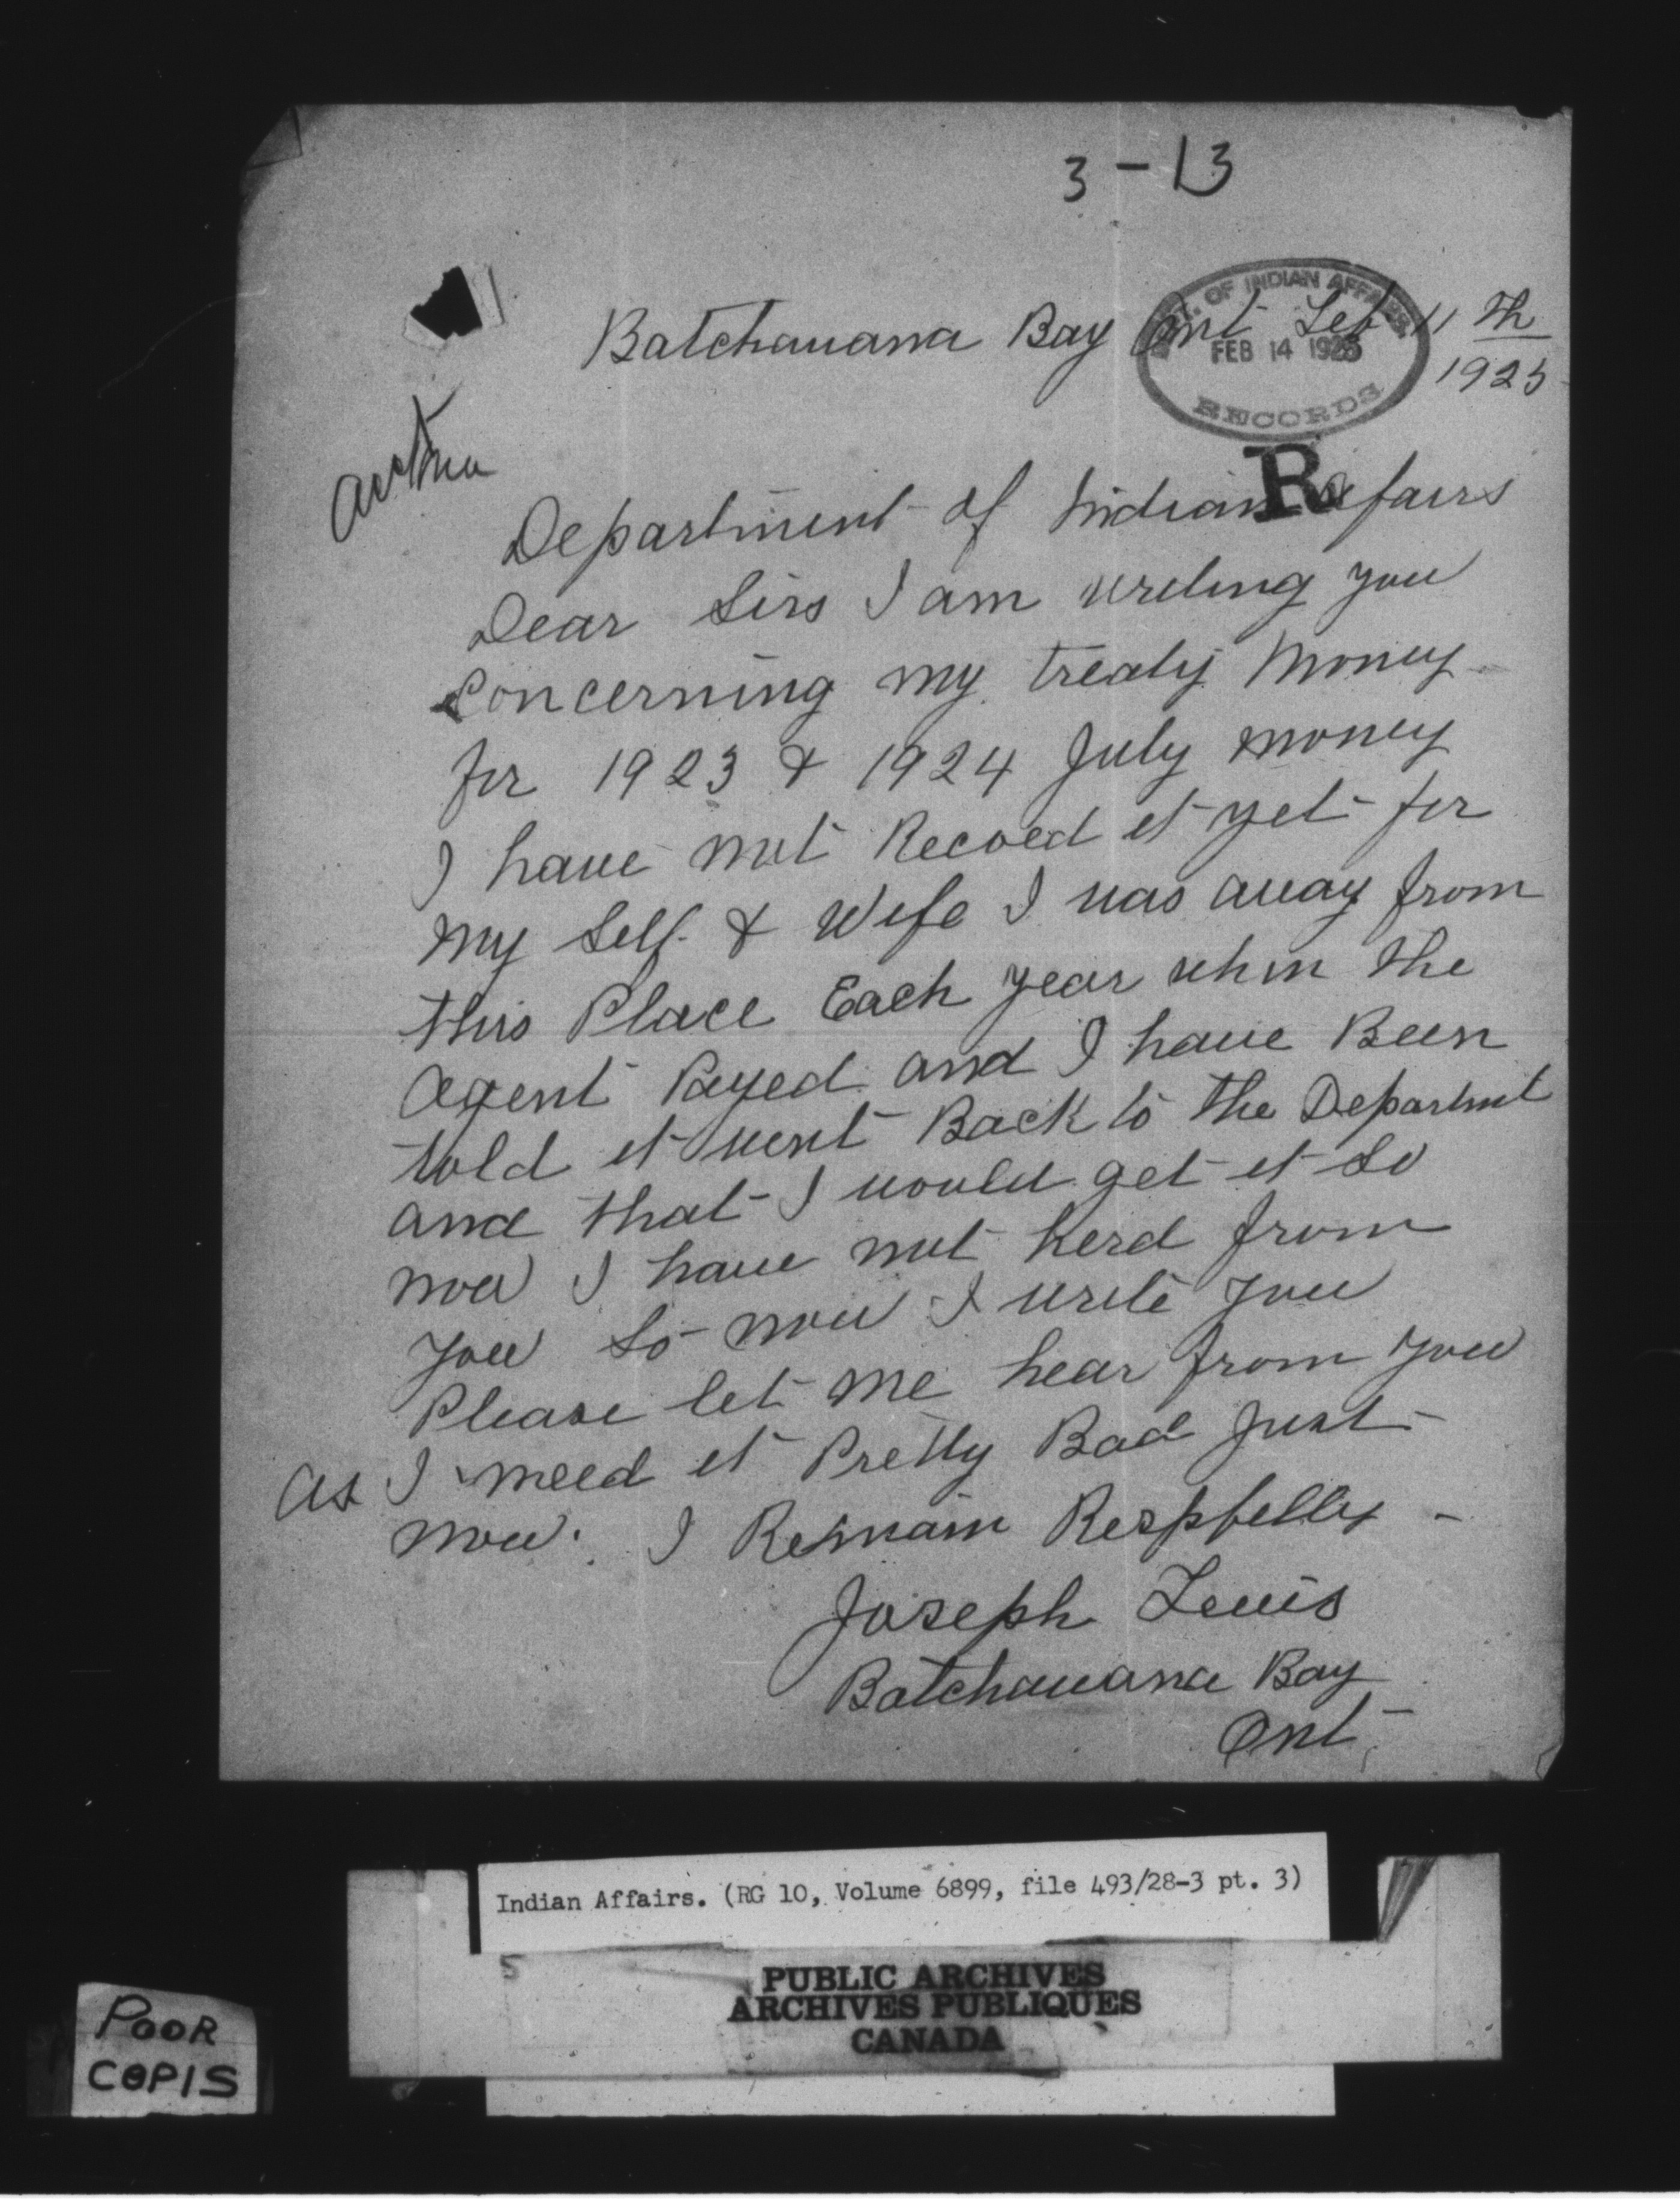 3-13
Batchauana Bay Ont Feb 11 th
1925
DEPT. OF INDIAN AFFAIRS
FEB 14 1925
RECORDS
R
Department of Indian afairs
Dear Sirs I am writing you
Concerning my treaty Money
for 1923 & 1924 July money
I have not Recved it yet for
my Self & Wife I was away from
this Place Each year when the
agent Payed and I have Been
told it went Back to the Department
and that I would get it So
now I have not herd from
you So now I write you
Please let me hear from you
as I need it Pretty Bad Just
now. I Remain Respfully
Joseph Lewis
Batchauana Bay
Ont
Indian Affairs. (RG 10, Volume 6899, file 493/28-3 pt. 3)
5
PUBLIC ARCHIVES
ARCHIVES PUBLIQUES
CANADA
POOR
COPIS